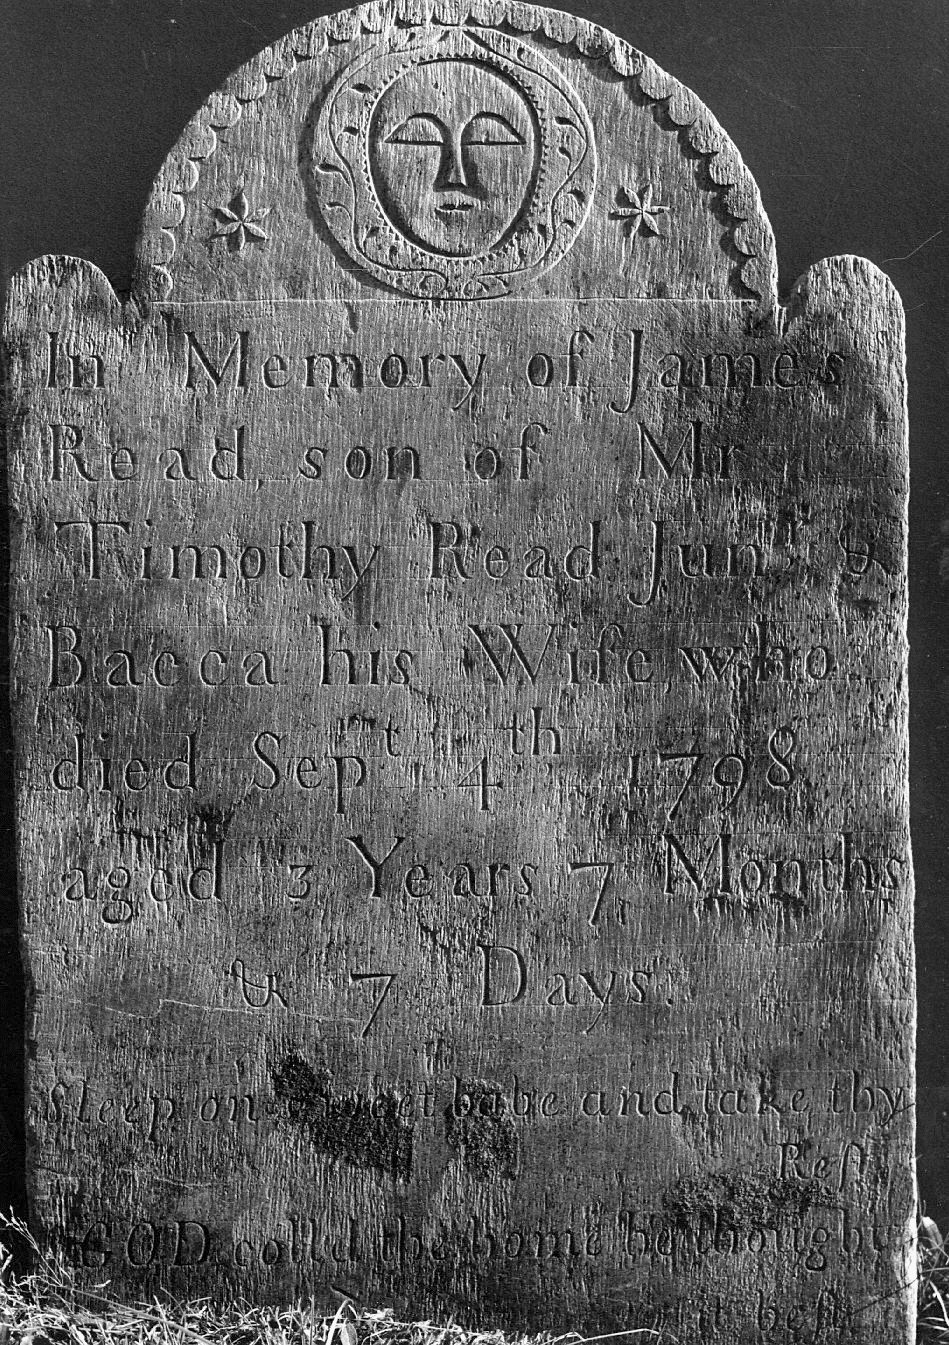 In Memory of James
Read, son of Mr
Timothy Read Junr. &
Bacca his Wife, who
died Sept. 4th 1798
aged 3 Years 7 Months
& 7 Days.
Sleep on sweet babe and take thy
Reſt
GOD call'd the home he thought
it beſt.